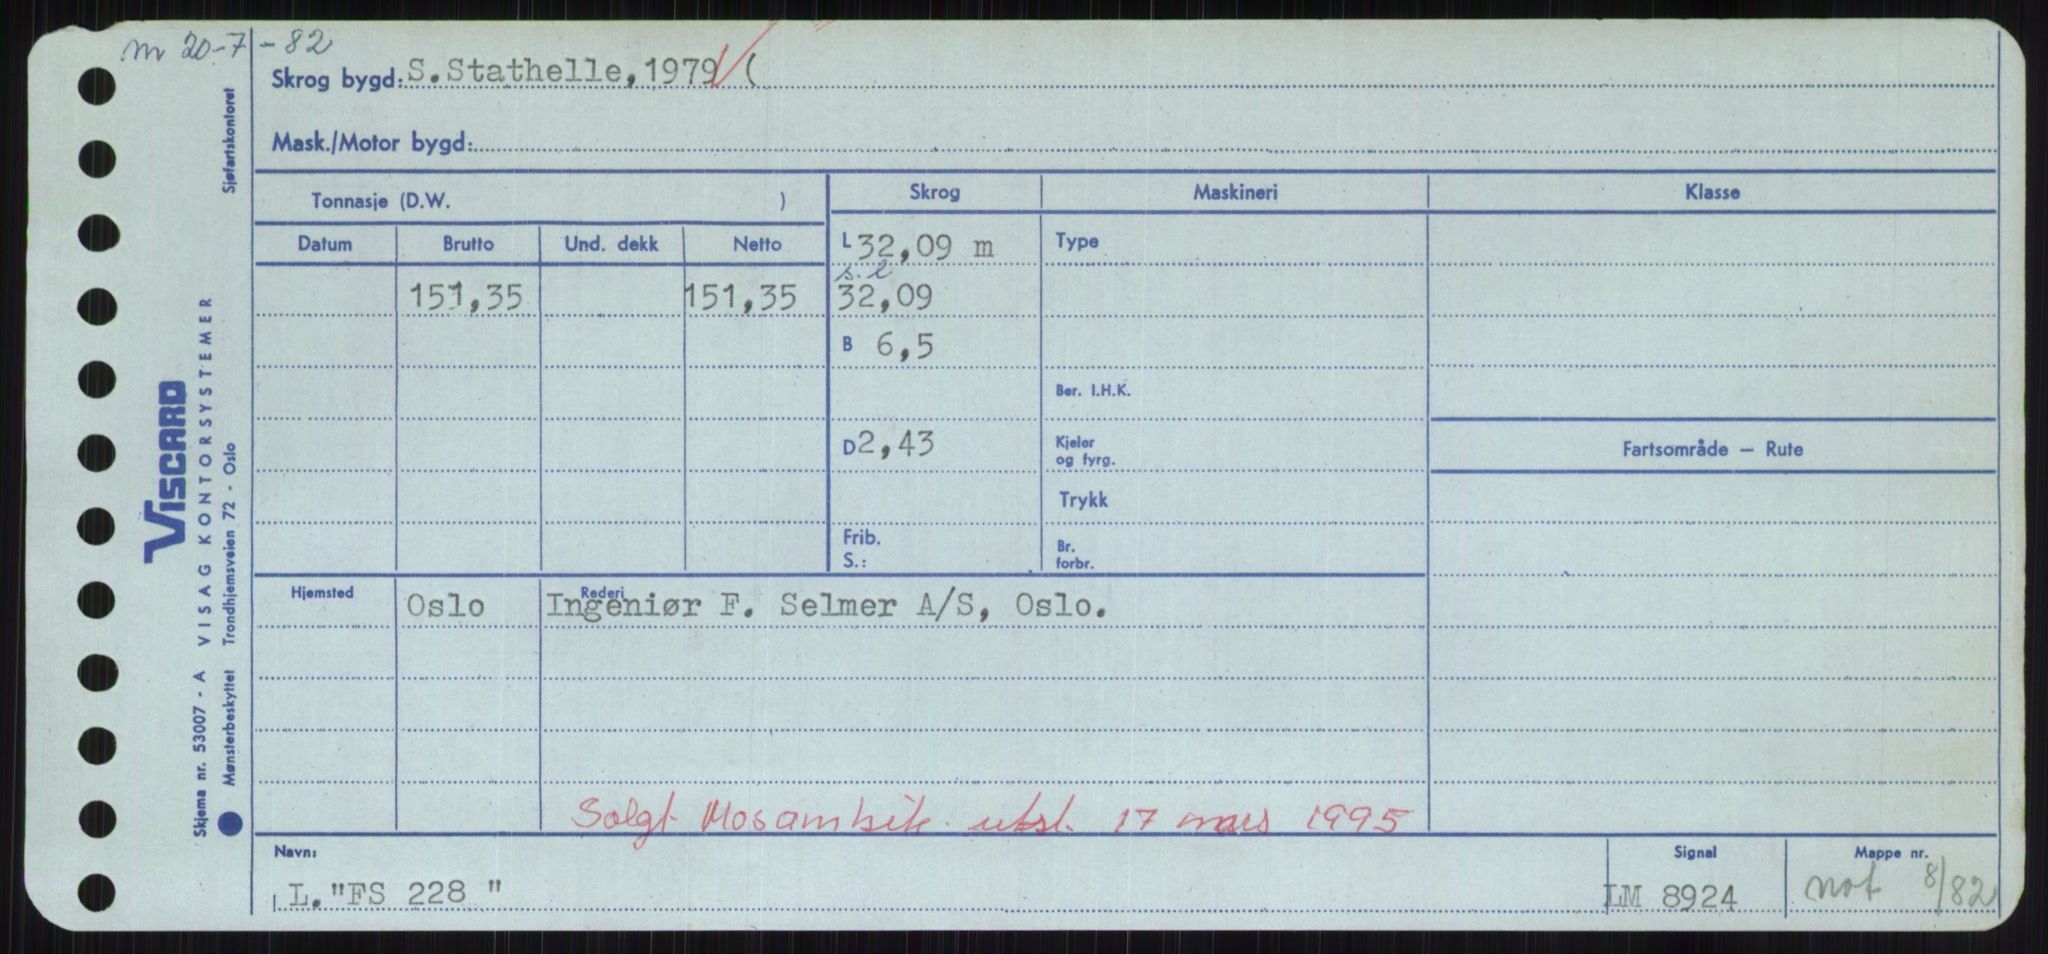 m 20-7-82
Skrog bygd: S.Stathelle,1979 (
Mask./Motor bygd:
Tonnasje (D.W. )
Skrog Maskineri Klasse
Datum Brutto Und. dekk Netto
L 32,09 m Type
s.l
151,35 151,35 32,09
B 6,5
Ber. I.H.K.
D 2,43 Kjeler og fyrg.
Fartsområde — Rute
Trykk
Frib. S.: Br. forbr.
Hjemsted Oslo Rederi Ingeniør F. Selmer A/S, Oslo.
Solgt Mosambik utsl. 17 mars 1995
Navn: Signal Mappe nr.
L. "FS 228 " LM 8924 not 8/82
Sjøfartskontoret
VISCARD
VISAG KONTORSYSTEMER
Skjema nr. 53007 - A
Mønsterbeskyttet Trondhjemsveien 72 - Oslo